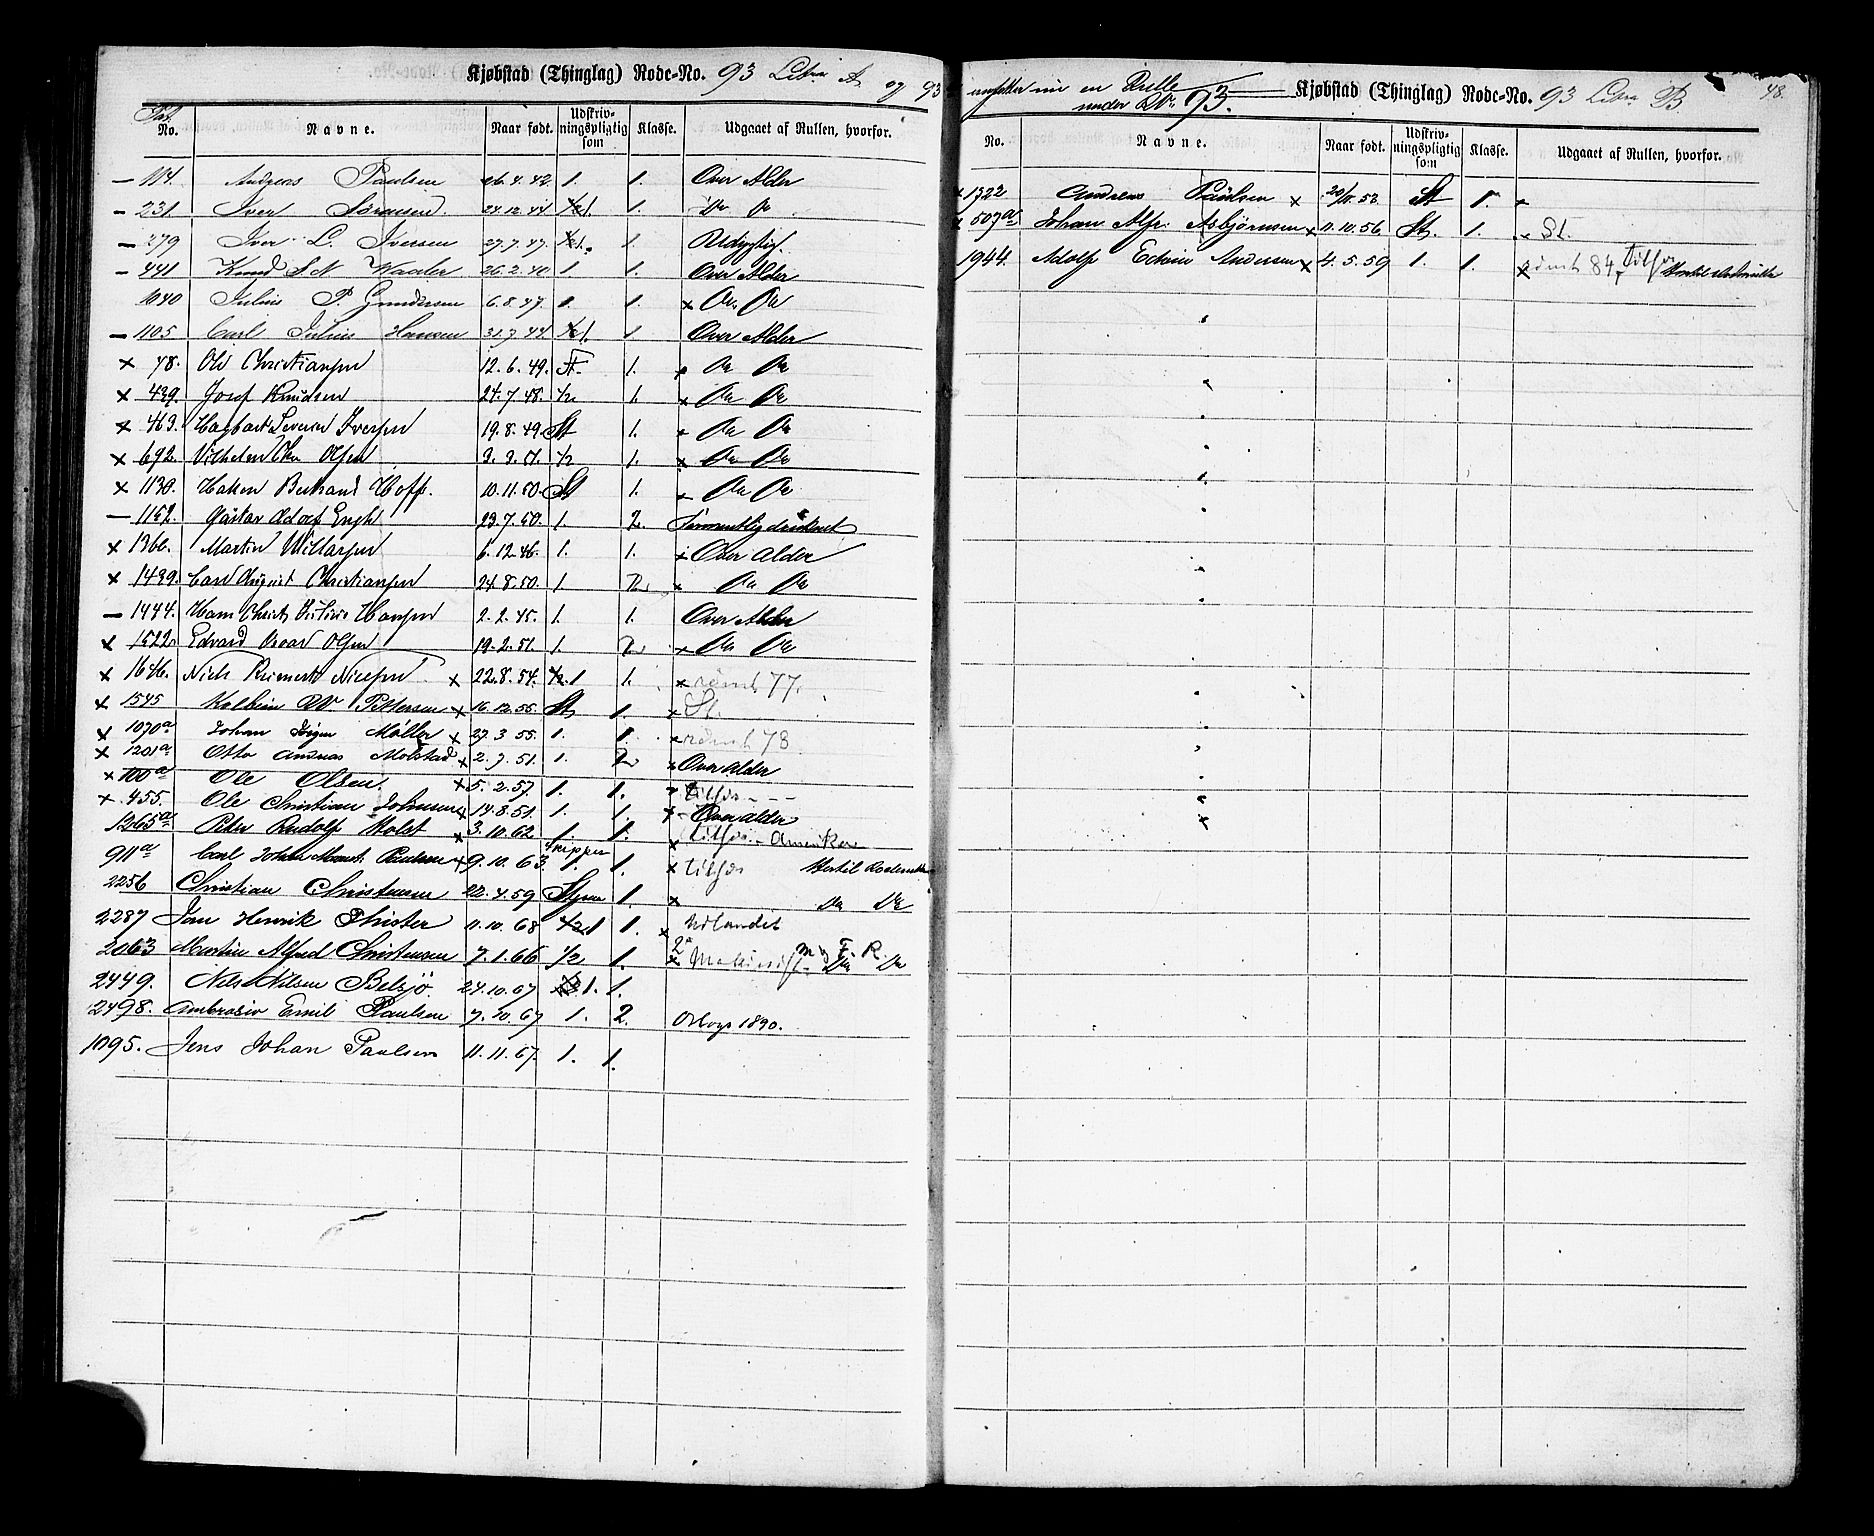 Kjøbstad (Thinglag) Rode-No. 93 Litra A og 93
No. Navne. Naar født. Udskrivningspligtig som Klasse. Udgaaet af Rullen, hvorfor.
– 114. Andreas Paulsen 26.4.42. 1. 1. Over Alder
– 231 Iver Sörensen 24.12.44 1. 1. Do Do
– 279 Iver L. Iversen 27.7.47. 1. 1. Udygtig.
– 441 Knud S N Waaler 26.2.40 1 1. Over Alder
1040 Julius P. Gundersen 6.8.47. 1. 1. x Do Do
– 1105 Carl Julius Hansen 31.7.44. 1. 1. Over Alder
x 78. Ole Christiansen 12.6.49. St. 1. x Do Do
x 439. Josef Knudsen 24.7.48. 1/2 1. x Do Do
x 463. Hagbart Severin Iversen 19.8.49. St 1. x Do Do
x 692. Vilhelm Olsen 9.9.51. 1/2 1. x Do Do
x 1130. Haken Bertrand Hoff. 10.11.50. St 1. x Do Do
– 1152. Gustav Adolf Engh 23.7.50. 1. 2.
x 1366. Martin Willarsen 6.12.46. 1. 1. x Over alder
x 1439. Carl August Christiansen 24.8.50. 1. 2. x Do Do
– 1444. Hans Christ. Hansen 2.2.45. 1. 1. Over Alder
x 1522. Edvard Oscar Olsen 19.2.51. 1. 2. x Do Do
x 1646. Niels Reinert Nielsen x 22.8.54. 1/2. 1 1. x römt 77.
x 1545 Kolbein Pettersen x 16.12.55. St 1. x St.
x 1070a Johan Jörgen Möller x 27.3.55. 1. 1. x römt 78
x 1201a Otto Andreas Molstad x 2.7.51. 1. 2. x Over alder
x 100a Ole Olsen. x 5.2.57. 1. 1. x tilsös
x 455. Ole Christian Johnsen x 14.8.51. 1. 1. x Over alder
1265a Peter Rudolf Holst x 3.10.62 1. 1. x tilsös. Amerika
911a Carl Johan Paulsen x 9.10.63. Skipper 1. 1. x tilsös
2256 Christian Christensen 22.4.59 Styrm 1. x Do Do
2287 Jan Henrik Thister 11.10.68 1/2 1 1. x Udlandet
2063 Martin Alfred Christensen 7.1.66 1/2 1. x Maskinist Do Do
2449. Nels Nilsen Belsjö. 24.10.67 1. 1.
2498. Ambrosio Emil Paulsen 7.10.67 1. 2. Orlogs 1890.
1095. Jens Johan Paulsen 11.11.67. 1. 1.
en Rulle under No. 93. Kjøbstad (Thinglag) Rode-No. 93 Litra B 48
No. Navne. Naar født. Udskrivningspligtig som Klasse. Udgaaet af Rullen, hvorfor.
x 1322 Andreas Paulsen x St 1. x
x 507a Johan Alfr. Asbjörnsen x 11.10.56 St. 1. x St.
1944. Adolf Edvin Andersen x 4.5.59 1. 1. x römt 84, tilsös